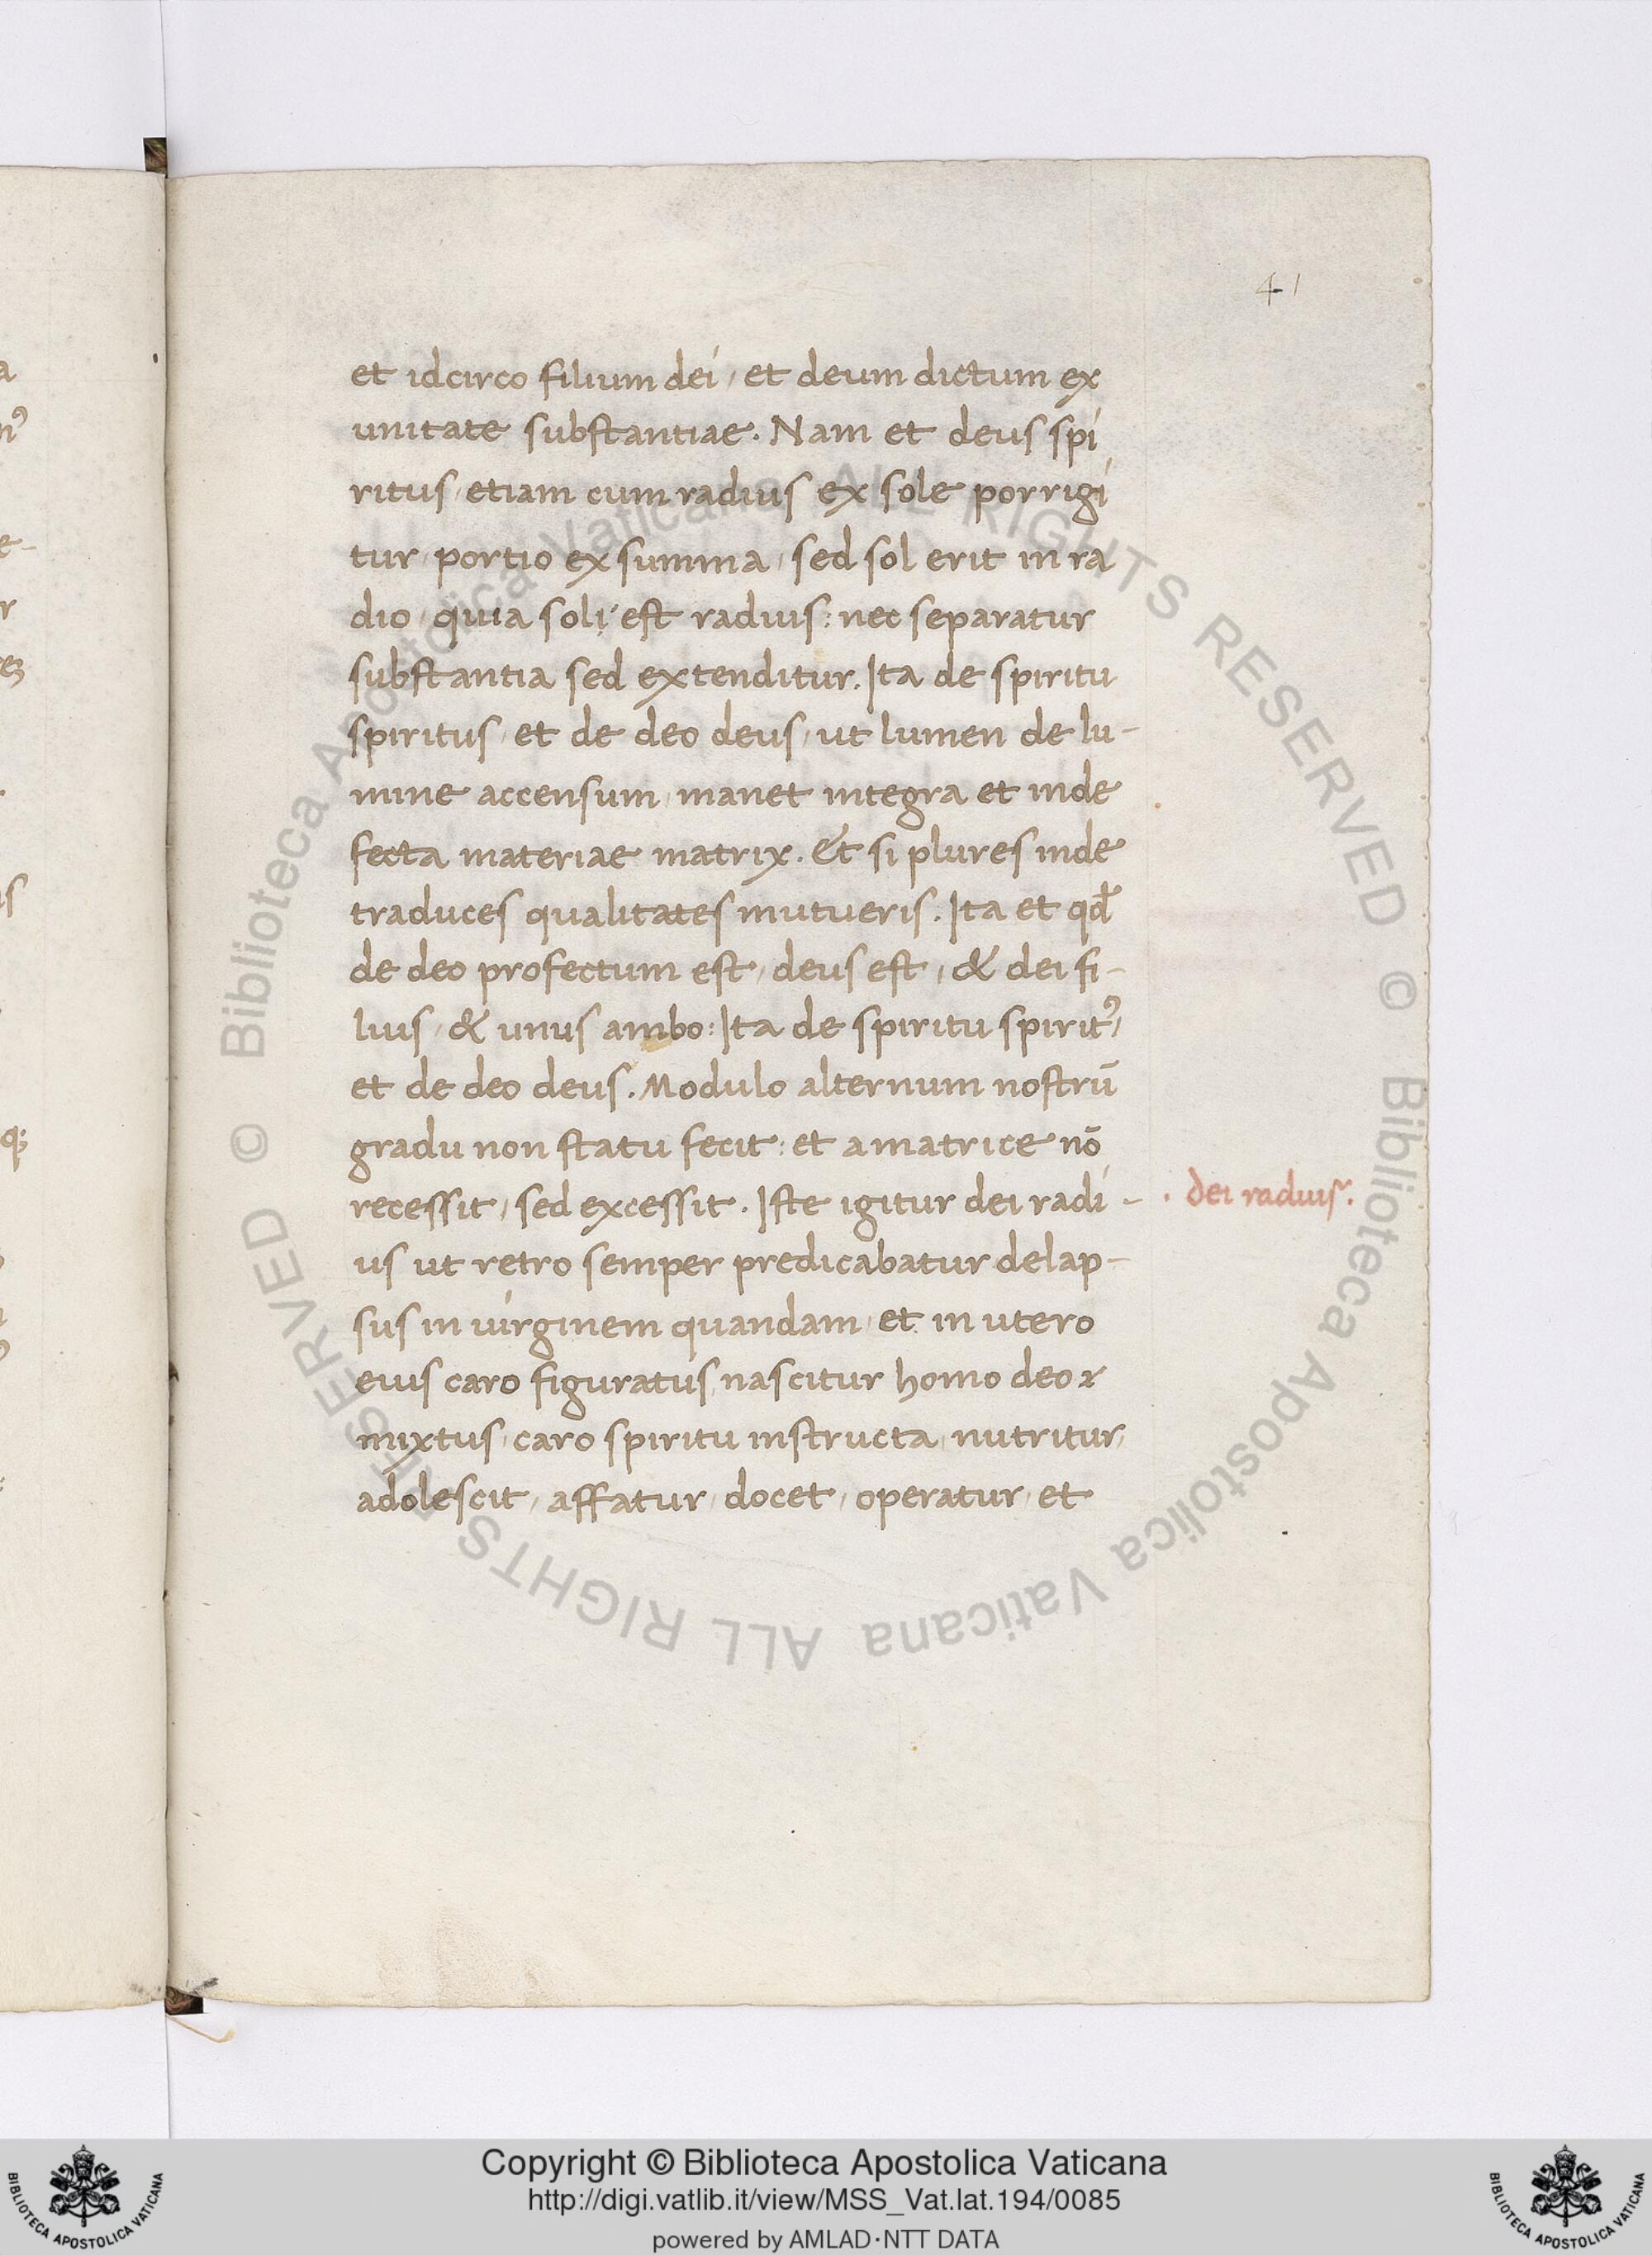 41
et idcirco filium dei, et deum dictum ex
unitate substantiae. Nam et deus spi
ritus, etiam cum radius ex sole porrigi
tur, portio ex summa, sed sol erit in ra
dio, quia soli est radius: nec separatur
substantia sed extenditur. Ita de spiritu
spiritus, et de deo deus, ut lumen de lu-
mine accensum, manet integra et inde
fecta materiae matrix. Et si plures inde
traduces qualitates mutueris. Ita et qđ
de deo profectum est, deus est, & dei fi-
lius, & unus ambo: Ita de spiritu spiritꝰ,
et de deo deus. Modulo alternum nostrū
gradu non statu fecit: et a matrice nō
recessit, sed excessit. Iste igitur dei radi-
· dei radius.
us ut retro semper predicabatur delap-
sus in uirginem quandam, et in utero
eius caro figuratus, nascitur homo deo
mixtus, caro spiritu instructa, nutritur,
adolescit, affatur, docet, operatur, et
© Biblioteca Apostolica Vaticana ALL RIGHTS RESERVED
© Biblioteca Apostolica Vaticana ALL RIGHTS RESERVED
Copyright © Biblioteca Apostolica Vaticana
http://digi.vatlib.it/view/MSS_Vat.lat.194/0085
powered by AMLAD·NTT DATA
BIBLIOTECA APOSTOLICA VATICANA
BIBLIOTECA APOSTOLICA VATICANA